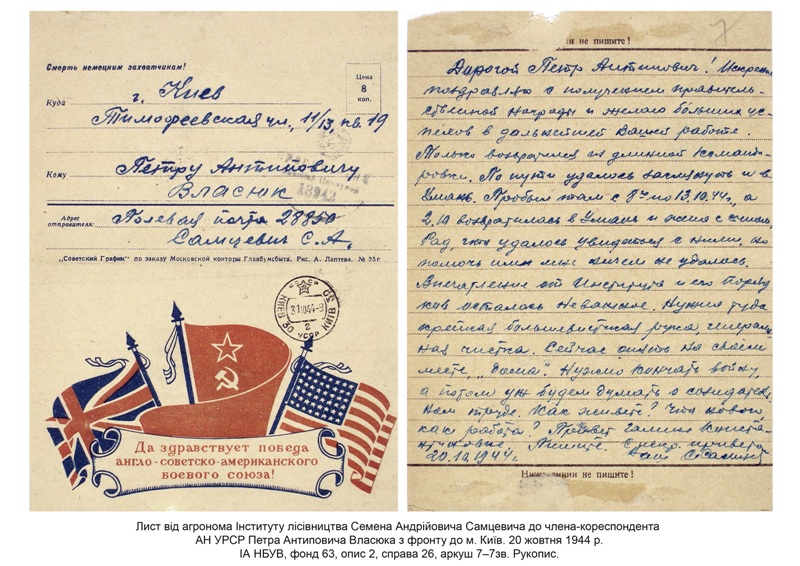 Смерть немецким захватчикам!
Цена
8
коп.
Куда
г. Киев
Тимофеевская ул., 11/13, кв. 19
Кому
Петру Антиповичу
Власюк
18942
Адрес
отправителя:
Полевая почта 28850
Самцевич С.А.
„Советский График" по заказу Московской конторы Главбумсбыта. Рис. А. Лаптева. № 75г
СССР
КИЕВ 30 КИЇВ 30
2
УССР
Да здравствует победа
англо-советско-американского
боевого союза!
7
ии не пишите!
Дорогой Петр Антипович! Искренно
поздравляю с получением правитель-
ственной награды и желаю больших ус-
пехов в дальнейшей Вашей работе.
Только возвратился из длинной команди-
ровки. По пути удалось заглянуть и в
Умань. Пробыл там с 8го по 13.10.44г., а
2.10 возвратилась в Умань и жена с сыном.
Рад, что удалось увидеться с ними, но
помочь им мне ничем не удалось.
Впечатление от Института и его поряд-
ков осталось неважное. Нужна туда
крепкая большевистская рука, генераль-
ная чистка. Сейчас опять на своем
месте, „дома". Нужно кончать войну
а потом уж будем думать о созидатель-
ном труде. Как живете? Что нового
как работа? Привет Галине Конста-
нтиновне. Пишите. С искр. приветом
20.10.1944г. Ваш С. Самцевич
Ниже линии не пишите!
Лист від агронома Інституту лісівництва Семена Андрійовича Самцевича до члена-кореспондента
АН УРСР Петра Антиповича Власюка з фронту до м. Київ. 20 жовтня 1944 р.
ІА НБУВ, фонд 63, опис 2, справа 26, аркуш 7–7зв. Рукопис.